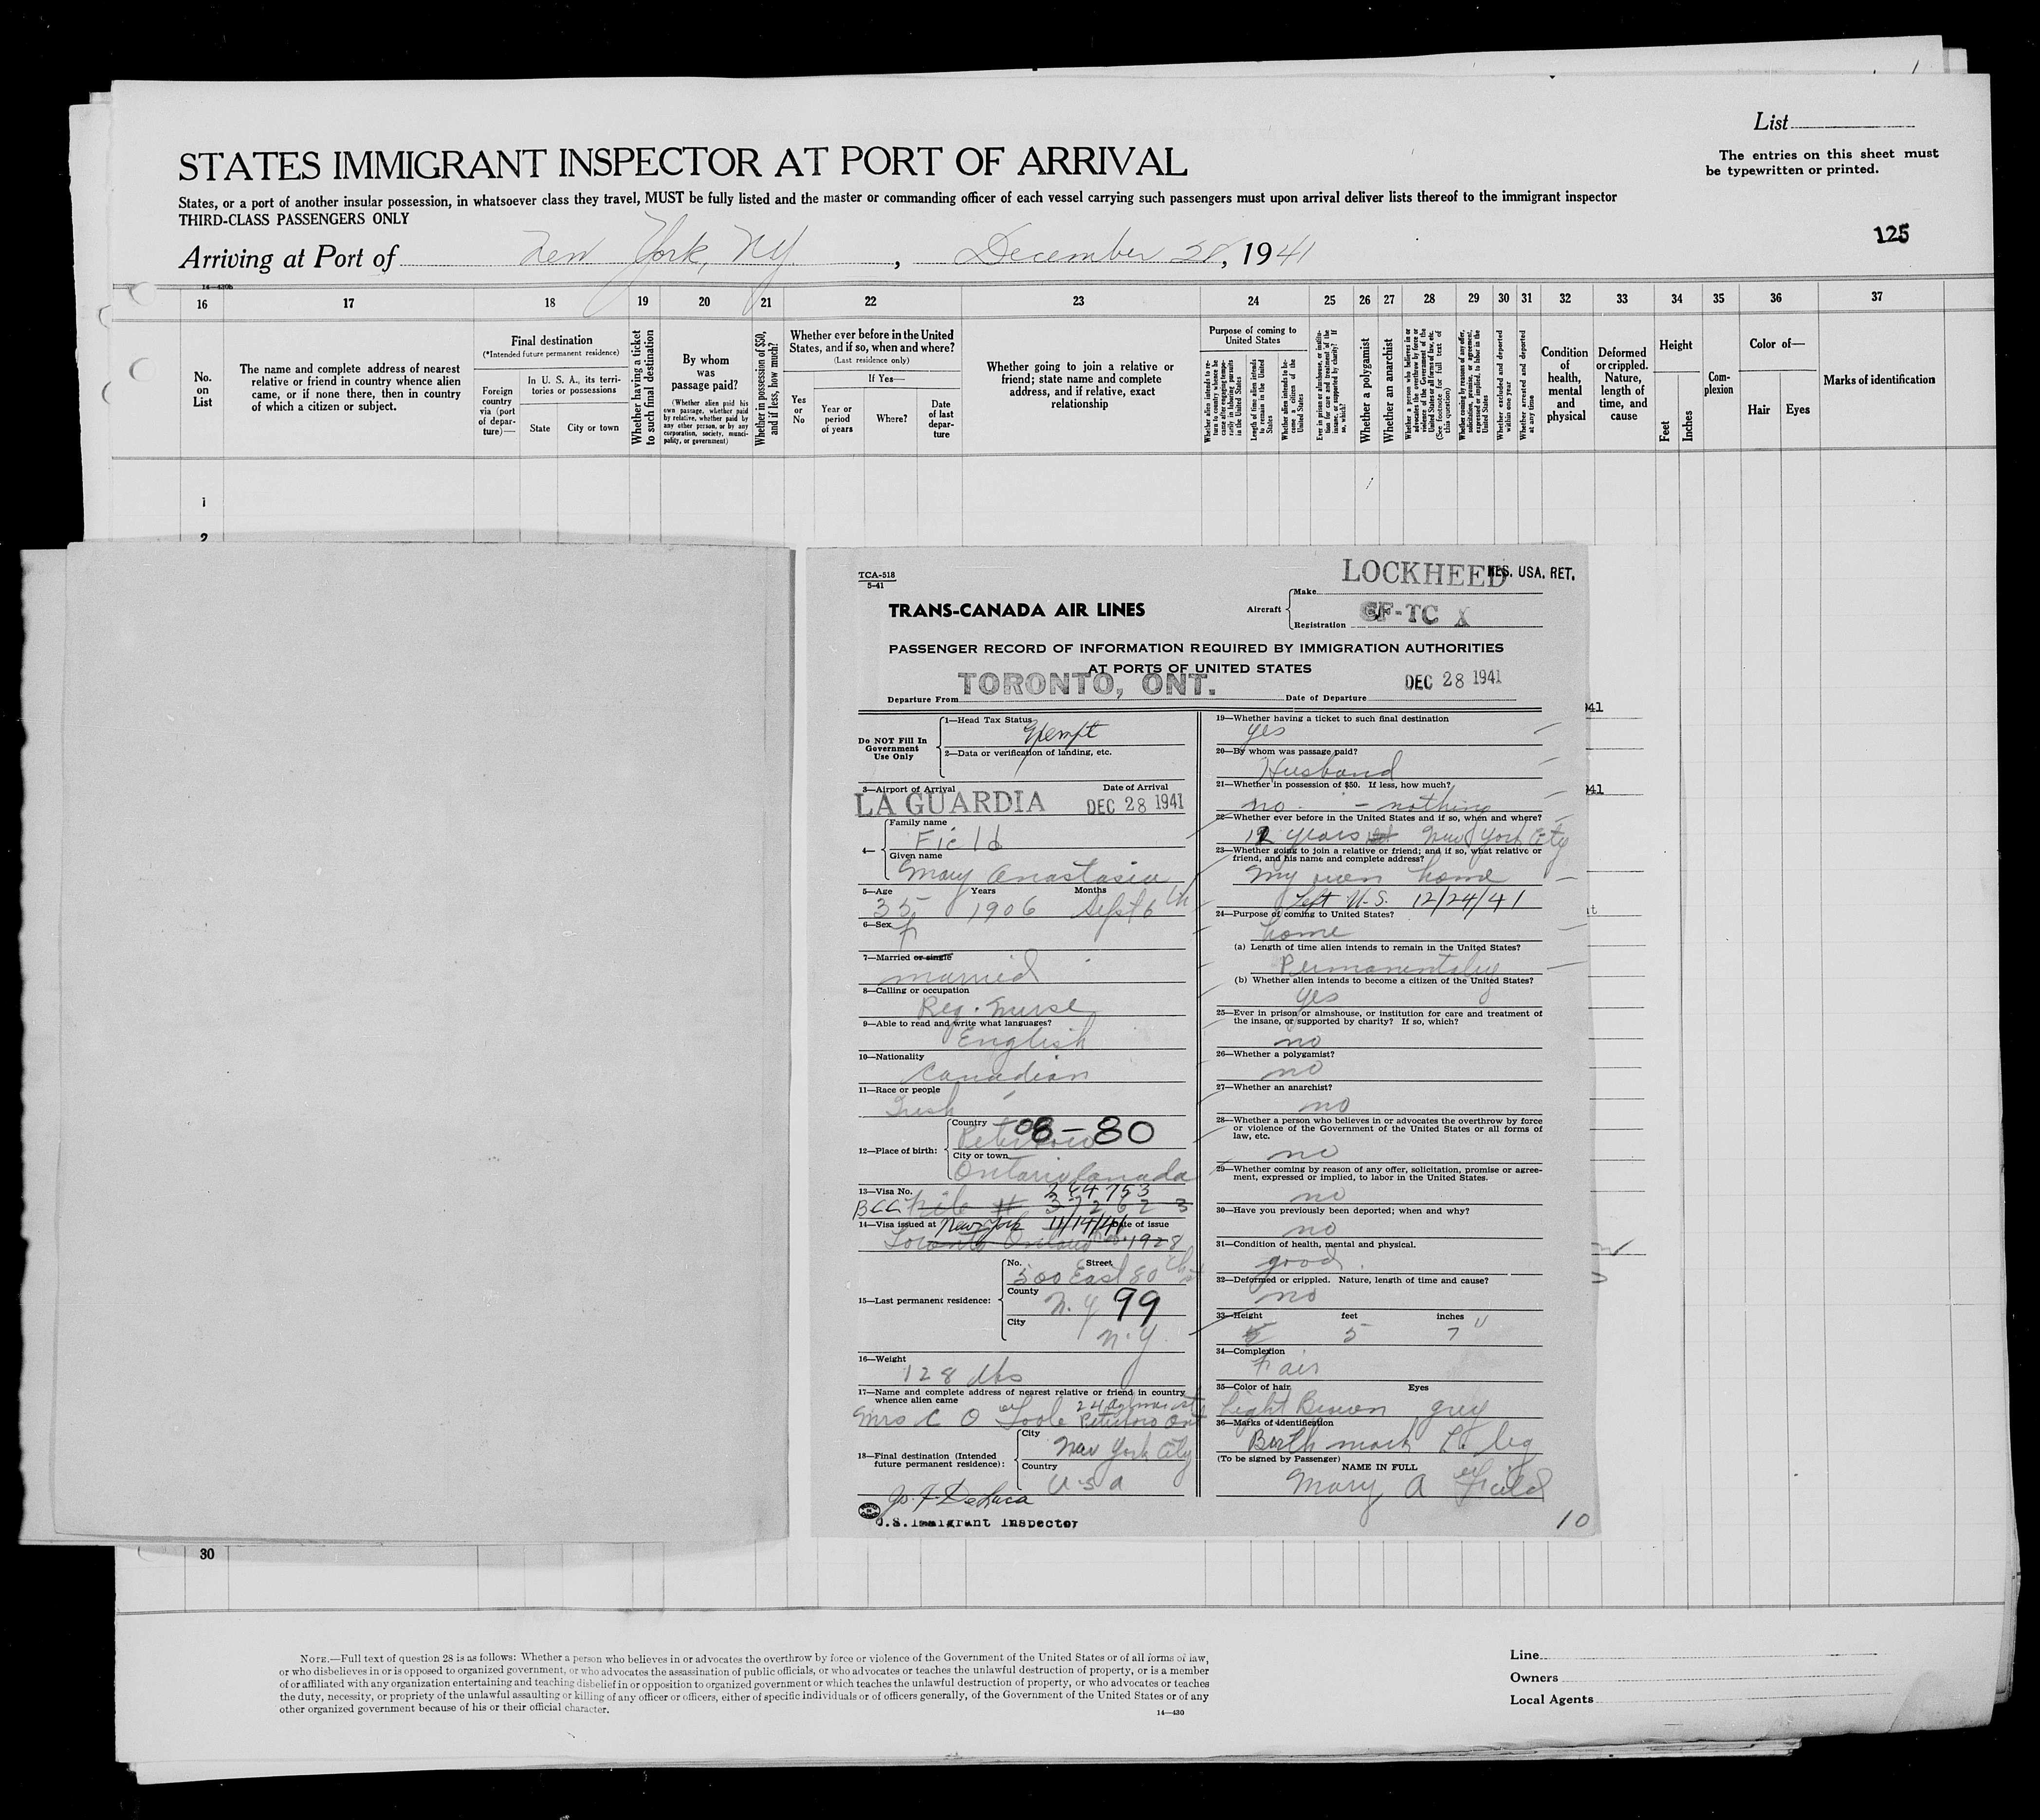 List
STATES IMMIGRANT INSPECTOR AT PORT OF ARRIVAL
The entries on this sheet must
be typewritten or printed.
States, or a port of another insular possession, in whatsoever class they travel, MUST be fully listed and the master or commanding officer of each vessel carrying such passengers must upon arrival deliver lists thereof to the immigrant inspector
THIRD-CLASS PASSENGERS ONLY
125
Arriving at Port of New York, NY, December 28, 1941
16 17 18 19 20 21 22 23 24 25 26 27 28 29 30 31 32 33 34 35 36 37
No.
on
List
The name and complete address of nearest
relative or friend in country whence alien
came, or if none there, then in country
of which a citizen or subject.
Final destination
(*Intended future permanent residence)
Foreign
country
via (port
of depar-
ture)—
In U. S. A., its terri-
tories or possessions
State
City or town
Whether having a ticket
to such final destination
By whom
was
passage paid?
(Whether alien paid his
own passage, whether paid
by relative, whether paid by
any other person, or by any
corporation, society, munici-
pality, or government)
Whether in possession of $50,
and if less, how much?
Whether ever before in the United
States, and if so, when and where?
(Last residence only)
If Yes—
Yes
or
No
Year or
period
of years
Where?
Date
of last
depar-
ture
Whether going to join a relative or
friend; state name and complete
address, and if relative, exact
relationship
Purpose of coming to
United States
Whether alien intends to re-
turn to country whence he
came after engaging tempo-
rarily in laboring pursuits
in the United States
Length of time alien intends
to remain in the United
States
Whether alien intends to be-
come a citizen of the
United States
Ever in prison or almshouse, or institu-
tion for care and treatment of the
insane, or supported by charity? If
so, which?
Whether a polygamist
Whether an anarchist
Whether a person who believes in or
advocates the overthrow by force or
violence of the Government of the
United States or all forms of law, etc.
(See footnote for full text of
this question)
Whether coming by reasons of any offer,
solicitation, promise, or agreement,
expressed or implied, to labor in the
United States
Whether excluded and deported
within one year
Whether arrested and deported
at any time
Condition
of
health,
mental
and
physical
Deformed
or crippled.
Nature,
length of
time, and
cause
Height
Feet
Inches
Com-
plexion
Color of—
Hair
Eyes
Marks of identification
1
2
TCA-518
5-41
LOCKHEED
RES. USA, RET.
TRANS-CANADA AIR LINES
Aircraft
Make
Registration CF-TC X
PASSENGER RECORD OF INFORMATION REQUIRED BY IMMIGRATION AUTHORITIES
AT PORTS OF UNITED STATES
Departure From TORONTO, ONT. Date of Departure DEC 28 1941
Do NOT Fill In
Government
Use Only
1—Head Tax Status Exempt
2—Data or verification of landing, etc.
3—Airport of Arrival Date of Arrival
LA GUARDIA DEC 28 1941
4— Family name
Field
Given name
Mary Anastasia
5—Age Years Months
35 1906 Sept 6th
6—Sex f
7—Married or single
married
8—Calling or occupation
Reg. Nurse
9—Able to read and write what languages?
English
10—Nationality
Canadian
11—Race or people
Irish
12—Place of birth:
Country 08-80
Peterboro
City or town
Ontario Canada
13—Visa No. 264753
BCC File # 372623
14—Visa issued at New York 11/14/41 Date of issue
Toronto Ontario 1928
15—Last permanent residence:
No. Street
500 East 80th St
County
N.Y 99
City
N.Y.
16—Weight
128 lbs
17—Name and complete address of nearest relative or friend in country
whence alien came
Mrs C O'Toole Peterboro Ont
18—Final destination (Intended
future permanent residence):
City
New York City
Country
U.S.A
Jo. F. DeLuca
U.S. Immigrant Inspector
19—Whether having a ticket to such final destination
yes
20—By whom was passage paid?
Husband
21—Whether in possession of $50. If less, how much?
no. - nothing
22—Whether ever before in the United States and if so, when and where?
12 years New York City
23—Whether going to join a relative or friend; and if so, what relative or
friend, and his name and complete address?
My own home
Left U.S. 12/24/41
24—Purpose of coming to United States?
home
(a) Length of time alien intends to remain in the United States?
Permanentaley
(b) Whether alien intends to become a citizen of the United States?
yes
25—Ever in prison or almshouse, or institution for care and treatment of
the insane, or supported by charity? If so, which?
no
26—Whether a polygamist?
no
27—Whether an anarchist?
no
28—Whether a person who believes in or advocates the overthrow by force
or violence of the Government of the United States or all forms of
law, etc.
no
29—Whether coming by reason of any offer, solicitation, promise or agree-
ment, expressed or implied, to labor in the United States.
no
30—Have you previously been deported; when and why?
no
31—Condition of health, mental and physical.
good.
32—Deformed or crippled. Nature, length of time and cause?
no
33—Height feet inches
5 7"
34—Complexion
Fair
35—Color of hair Eyes
Light Brown grey
36—Marks of identification
Birth mark L. leg
(To be signed by Passenger)
NAME IN FULL
Mary A Field
10
30
NOTE.—Full text of question 28 is as follows: Whether a person who believes in or advocates the overthrow by force or violence of the Government of the United States or of all forms of law,
or who disbelieves in or is opposed to organized government, or who advocates the assassination of public officials, or who advocates or teaches the unlawful destruction of property, or is a member
of or affiliated with any organization entertaining and teaching disbelief in or opposition to organized government or which teaches the unlawful destruction of property, or who advocates or teaches
the duty, necessity, or propriety of the unlawful assaulting or killing of any officer or officers, either of specific individuals or of officers generally, of the Government of the United States or of any
other organized government because of his or their official character.
14—430
Line
Owners
Local Agents